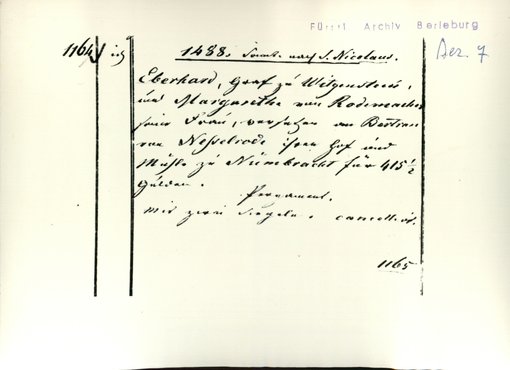 Fürstl. Archiv Berleburg
1164 1488. Sonnt. nach S. Nicolaus. Dez. 7
Eberhard, Graf zu Witgenstein,
und Margarethe von Rodemacher
seine Frau, versetzen an Bertram
von Nesselrode ihren Hof und
Mühle zu Nümbracht für 415 1/2
Gülden.
Pergament.
Mit zwei Siegeln.
1165